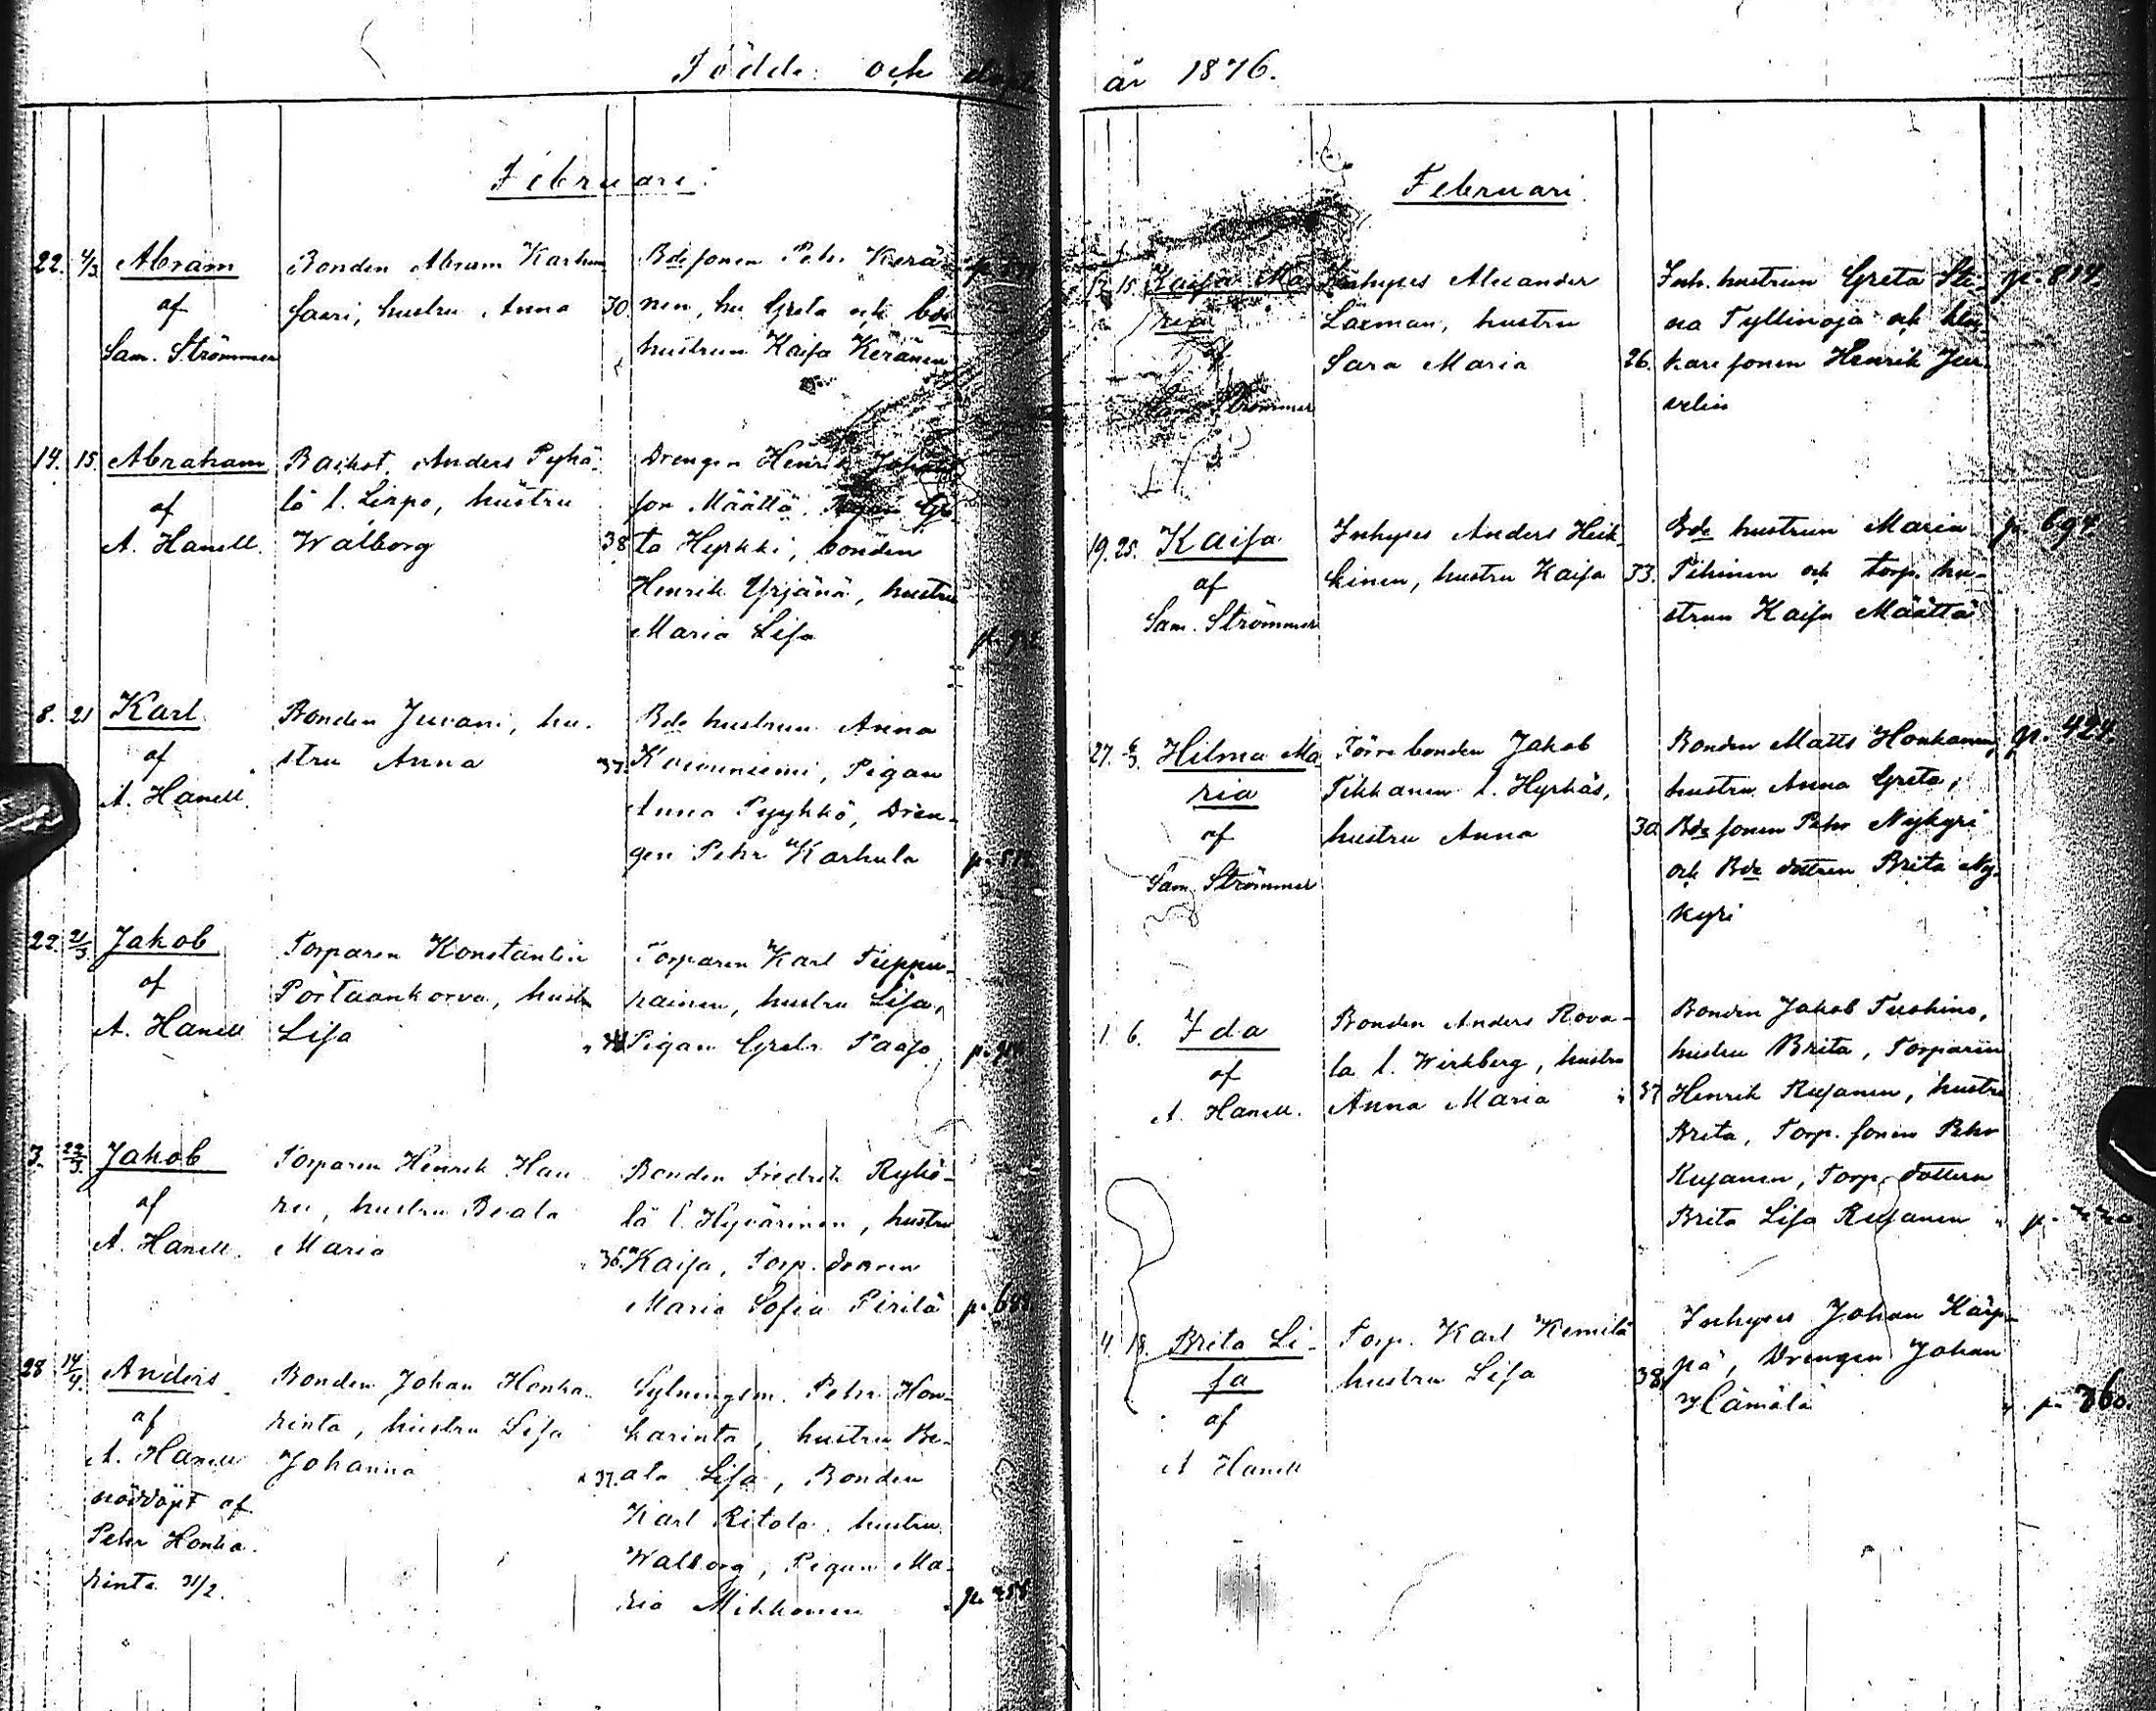 Födde och döpte år 1876.
Februari.
22. 4/3 Abram
af
Sam. Strömmer
Bonden Abram Karhun
saari, hustru Anna 30
Bdesonen Petr Kerä-
nen, hu Greta och bde
hustrun Kaisa Keränen
14. 15. Abraham
af
A. Hanell.
Backst. Anders Pyhä-
lä l. Lirpo, hustru
Walborg 38
Drengen Henrik Johans
son Määttä, Pigan Gre
ta Hyrkki, bonden
Henrik Yrjänä, hustru
Maria Lisa
8. 21 Karl
af
A. Hanell.
Bonden Juvani, hu-
stru Anna 37.
Bde hustrun Anna
Koivuniemi, Pigan
Anna Pyykkö, Dren-
gen Pehr Karhula
22. 2/3 Jakob
af
A. Hanell
Torparen Konstantin
Pörtaankorva, hustru
Lisa
Torparen Karl Tieppu-
rainen, hustru Lisa,
Pigan Greta Paaso
3. 22/3. Jakob
af
A. Hanell.
Torparen Henrik Hau
ru, hustru Beata
Maria 36.
Bonden Fredrik Ryhö-
lä l. Hyvärinen, hustru
Kaisa, Torp. dottren
Maria Sofia Pirilä
28 14/4. Anders
af
A. Hanell
nöddöpt af
Pehr Honka-
rinta 31/2.
Bonden Johan Honka-
rinta, hustru Lisa
Johanna 37.
Sytningsm. Pehr Hon-
karinta, hustru Be-
ata Lisa, Bonden
Karl Ritola, hustru
Walborg, Pigan Ma-
ria Mikkonen
Februari
12. 15. Kaisa Ma-
ria
af
Sam. Strömmer
Inhyses Alexander
Laxman, hustru
Sara Maria 26.
Inh. hustrun Greta Sti-
na Tyllinoja och klo-
kare sonen Henrik Jur-
velin
p. 814.
19. 25. Kaisa
af
Sam. Strömmer
Inhyses Anders Heik-
kinen, hustru Kaisa 33.
Bde hustrun Maria
Pihinen och torp. hu-
strun Kaisa Määttä
p. 694.
27. 6/3. Hilma Ma
ria
af
Sam. Strömmer
Förre bonden Jakob
Tikkanen l. Hyrkäs,
hustru Anna 30
Bonden Matts Honkanen,
hustru Anna Greta,
Bde sonen Pehr Nykyri
och Bde dottren Brita Ny-
kyri
p. 424.
1. 6. Ida
af
A. Hanell.
Bonden Anders Rova-
la l. Wirkberg, hustru
Anna Maria 37
Bonden Jakob Tuohino,
hustru Brita, Torparen
Henrik Rusanen, hustru
Brita, Torp. sonen Pehr
Rusanen, Torp. dottern
Brita Lisa Rusanen
4 18. Brita Li-
sa
af
A Hanell
Torp. Karl Kemilä
hustru Lisa 38.
Inhyses Johan Kärp-
pä, Drengen Johan
Hämälä
p. 360.